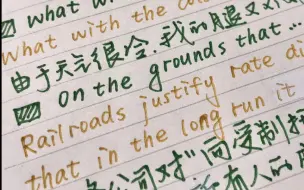 what w
What with the co
由于天气很冷,我的腿又
on the grounds that ...
Railroads justify rate di
that in the long run it
公司对"同受制
有人的